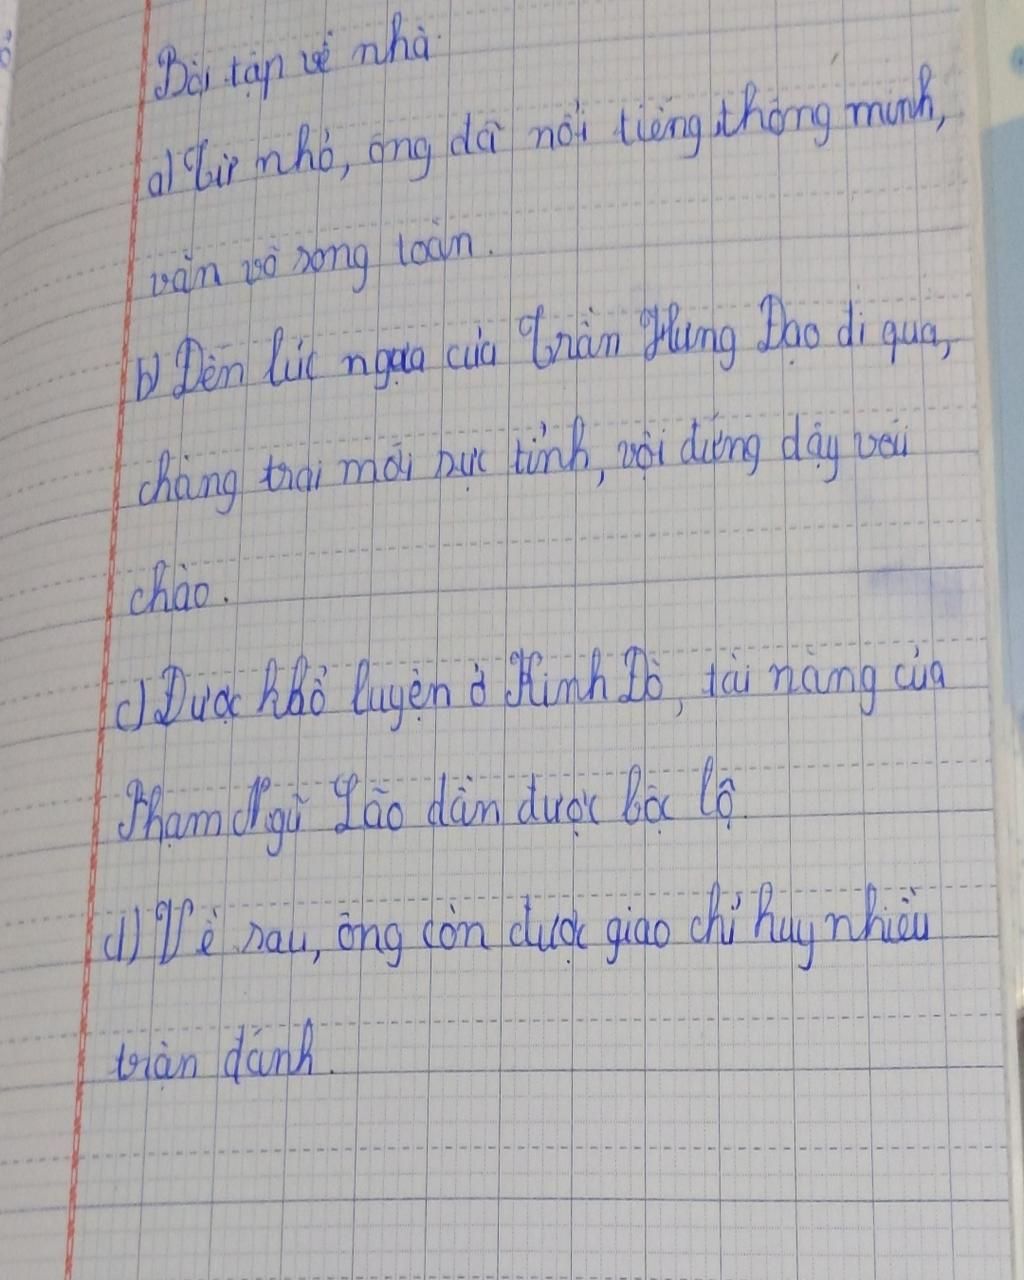 Bài tập về nhà
a) Từ nhỏ, ông đã nổi tiếng thông minh,
văn võ song toàn.
b) Đến lúc ngựa của Trần Hưng Đạo đi qua,
chàng trai mới sực tỉnh, vội đứng dậy vái
chào.
c) Được khổ luyện ở Kinh Đô, tài năng của
Phạm Ngũ Lão dần được bộc lộ.
d) Về sau, ông còn được giao chỉ huy nhiều
trận đánh.